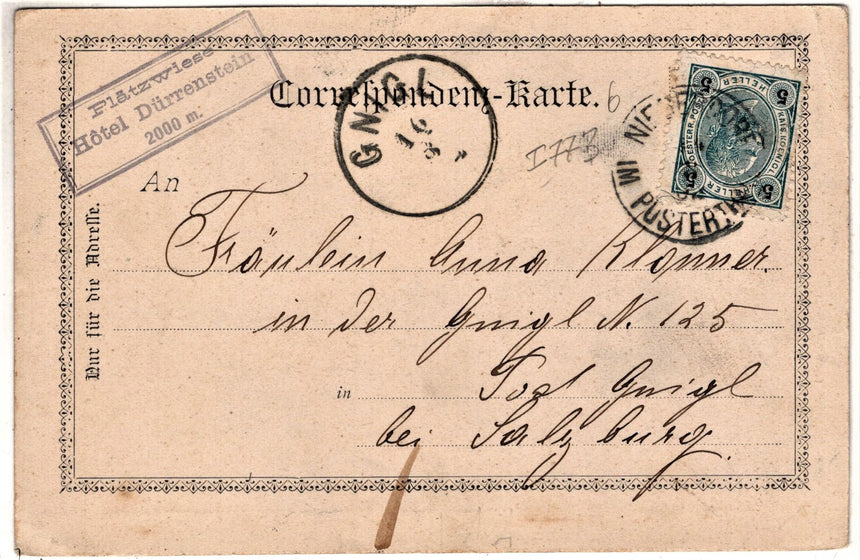 Plätzwiese
Hôtel Dürrenstein
2000 m.
Correspondenz-Karte.
6
I77B
GNIGL
16
8
NIEDERDORF
IM PUSTERTHAL
5 HELLER 5
KAIS. KOENIGL
OESTERR. POST
5 HELLER 5
An
Fräulein Anna Klonner.
in der Gnigl N. 125
in Post Gnigl
bei Salzburg.
Nur für die Adresse.